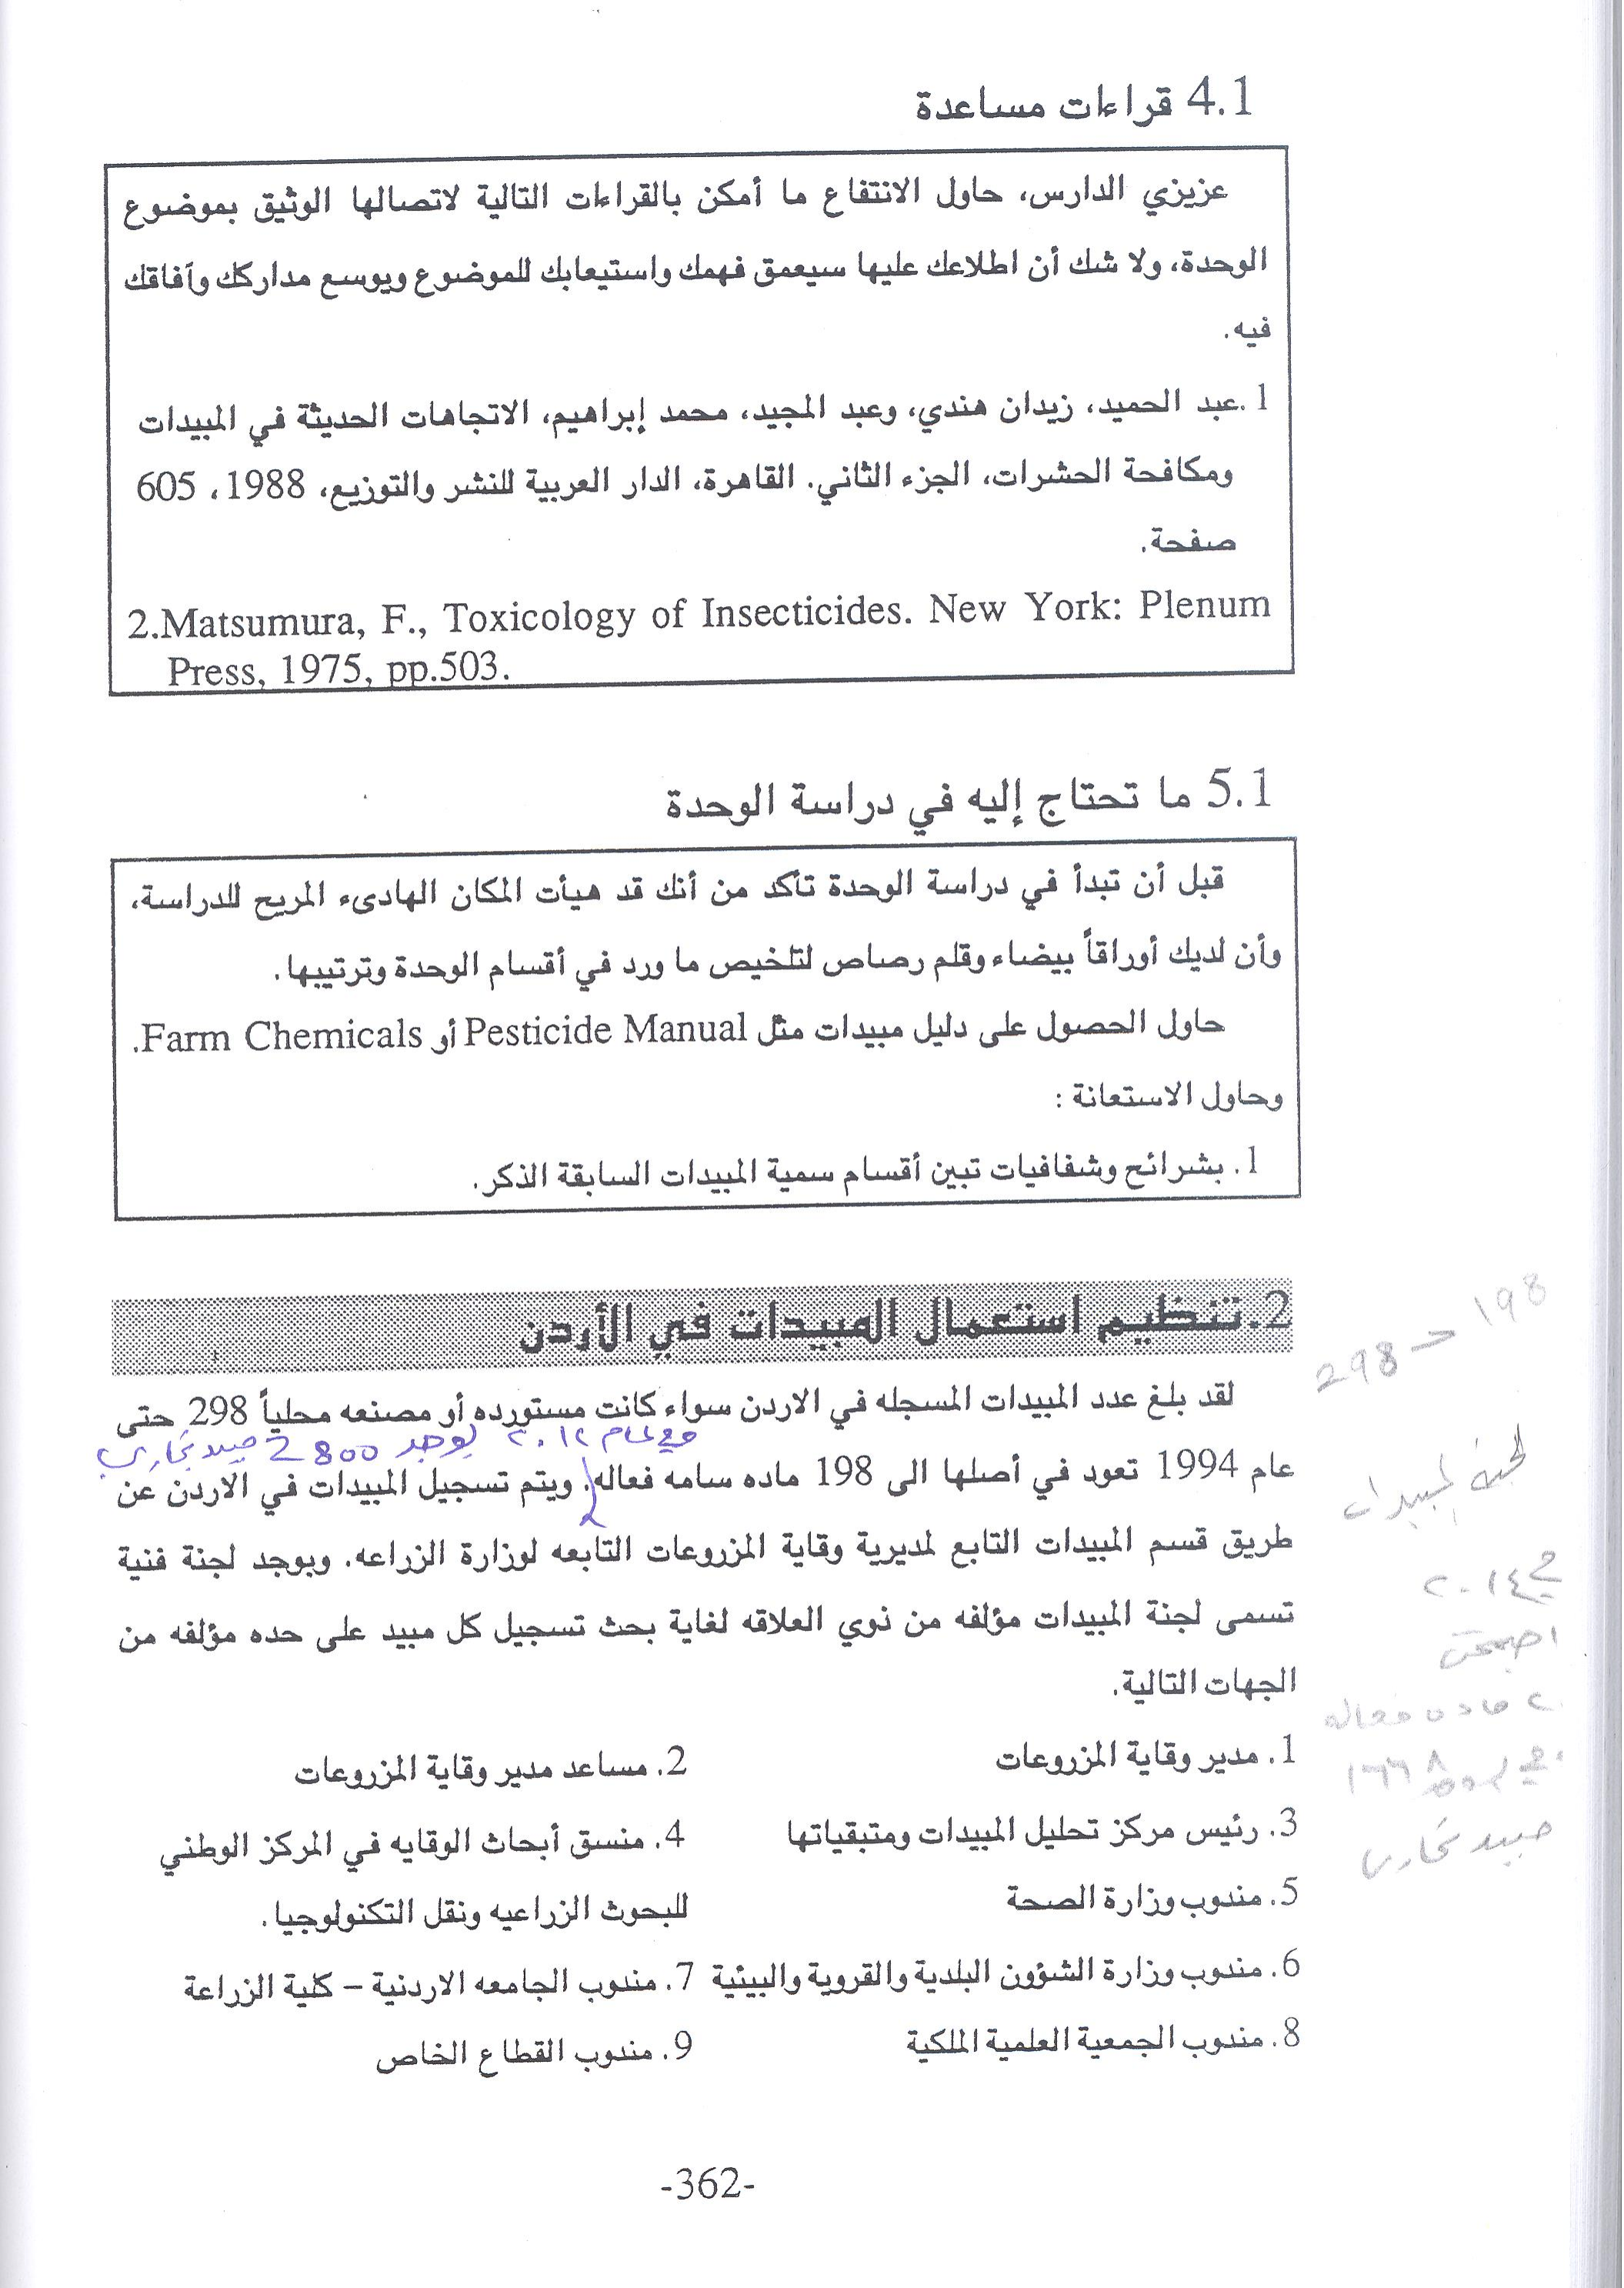 4.1 قراءات مساعدة
عزيزي الدارس، حاول الانتفاع ما أمكن بالقراءات التالية لاتصالها الوثيق بموضوع
الوحدة، ولا شك أن اطلاعك عليها سيعمق فهمك واستيعابك للموضوع ويوسع مداركك وآفاقك
فيه.
1.عبد الحميد، زيدان هندي، وعبد المجيد، محمد إبراهيم، الاتجاهات الحديثة في المبيدات
ومكافحة الحشرات، الجزء الثاني. القاهرة، الدار العربية للنشر والتوزيع، 1988، 605
صفحة.
2.Matsumura, F., Toxicology of Insecticides. New York: Plenum
Press, 1975, pp.503.
5.1 ما تحتاج إليه في دراسة الوحدة
قبل أن تبدأ في دراسة الوحدة تأكد من أنك قد هيأت المكان الهادىء المريح للدراسة،
وأن لديك أوراقاً بيضاء وقلم رصاص لتلخيص ما ورد في أقسام الوحدة وترتيبها.
حاول الحصول على دليل مبيدات مثل Pesticide Manual أو Farm Chemicals.
وحاول الاستعانة :
1. بشرائح وشفافيات تبين أقسام سمية المبيدات السابقة الذكر.
2.تنظيم استعمال المبيدات في الأردن
198
298
لقد بلغ عدد المبيدات المسجله في الاردن سواء كانت مستورده أو مصنعه محلياً 298 حتى
وفي عام ٢٠١٢ يوجد 2800 مبيد تجاري
عام 1994 تعود في أصلها الى 198 ماده سامه فعاله. ويتم تسجيل المبيدات في الاردن عن
طريق قسم المبيدات التابع لمديرية وقاية المزروعات التابعه لوزارة الزراعه. ويوجد لجنة فنية
تسمى لجنة المبيدات مؤلفه من ذوي العلاقه لغاية بحث تسجيل كل مبيد على حده مؤلفه من
الجهات التالية.
لجنة المبيدات
في ٢٠١٤
اصبحت
ماده فعاله
مبيد تجاري
1. مدير وقاية المزروعات
2. مساعد مدير وقاية المزروعات
3. رئيس مركز تحليل المبيدات ومتبقياتها
4. منسق أبحاث الوقايه في المركز الوطني
للبحوث الزراعيه ونقل التكنولوجيا.
5. مندوب وزارة الصحة
6. مندوب وزارة الشؤون البلدية والقروية والبيئية
7. مندوب الجامعه الاردنية – كلية الزراعة
8. مندوب الجمعية العلمية الملكية
9. مندوب القطاع الخاص
-362-